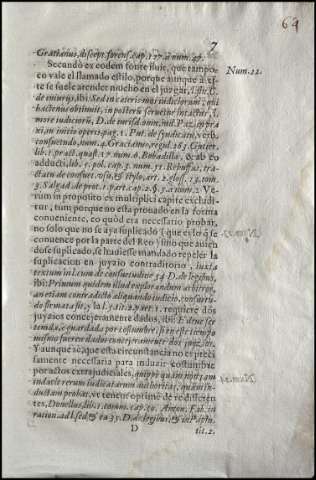 64
7
Gratianus, discept. forens. cap. 127. à num. 47.
Secundò ex eodem fonte fluit, que tampo-
co vale el llamado estilo, porque aunque à es-
te se suele atender mucho en el juzgar,
de iniurijs, ibi: Sed in cæteris iudiciorum,
hactenus obtinuit, in posterũ servetur intactus,
more iudiciorũ, D. de iurisd. omn. iud. Paz. in pra
xi an initio operis, pag. 1. Put. de syndicatu, verb.
consuetudo, num. 4. Gracianus, regul. 163. Gutier.
lib. 1. pract. quæst. 17. num. 6. Bobadilla, & ab eo
adducti, lib. 5. pol. cap. 3. num. 51. Rebuffus, trac-
tatu de consuet. usu, & stylo, art. 2. glos. 13. tom.
3. Salgad. de prot. 1. part. cap. 2. §. 5. à num. 2. Ve-
rum in proposito ex multiplici capite excludi-
tur, tum porque no esta provado en la forma
conveniente, co quòd era necessario probar,
no solo que no se aya suplicado (que es lo q̃ se
convence por la parte del Reo) sino que avien
dose suplicado, se huviesse mandado repeler la
suplicacion en juyzio contraditorio, iuxta
textum in l. cum de consuetudine 34. D. de legibus,
ibi: Primum quidem illud explorandum arbitror,
an etiam contradicto aliquando iudicio, consuetu-
do firmata sit, y la l. 5. tit. 2. part. 1. requiere dos
juyzios concejeramente dados, ibi: E deve ser
tenida, è guardada por costumbre, si en este tiempo
mismo fueren dados concejeramente dos juyzios.
Y aunque acaso esta circunstancia no es preci-
samente necessaria para inducir costumbre
por actos extrajudiciales,
inducit rerum iudicatarum authoritas,
ductam probat, vt tenent optimè
tes, Donellus, lib. 1. comm. cap. 10. Anton. Fab. in
ration. ad l. sed, & ea 35. D. de legibus, & in Papin.
D
tit. 2.
Num. 22.